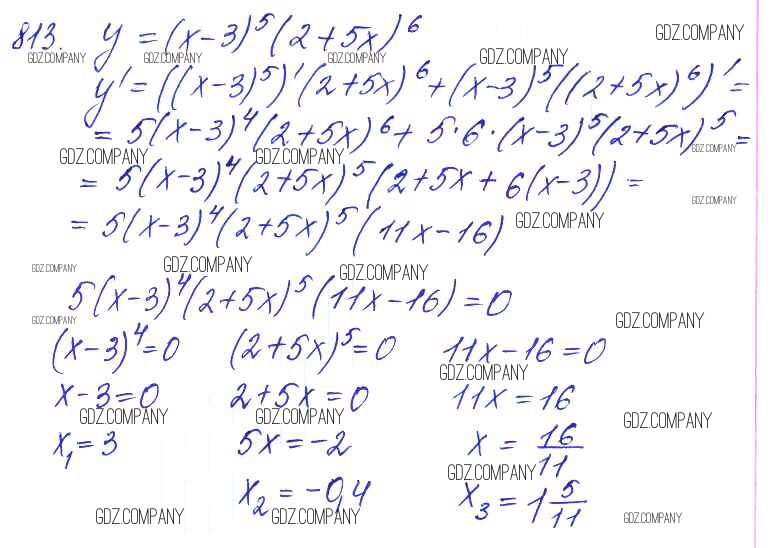 813. y = (x-3)^5 (2+5x)^6
GDZ.COMPANY
GDZ.COMPANY GDZ.COMPANY GDZ.COMPANY GDZ.COMPANY
y' = ((x-3)^5)' (2+5x)^6 + (x-3)^5 ((2+5x)^6)' =
= 5(x-3)^4 (2+5x)^6 + 5·6·(x-3)^5 (2+5x)^5 =
GDZ.COMPANY GDZ.COMPANY GDZ.COMPANY
= 5(x-3)^4 (2+5x)^5 (2+5x + 6(x-3)) =
GDZ.COMPANY
= 5(x-3)^4 (2+5x)^5 (11x-16)
GDZ.COMPANY
GDZ.COMPANY GDZ.COMPANY GDZ.COMPANY
5(x-3)^4 (2+5x)^5 (11x-16) = 0
GDZ.COMPANY GDZ.COMPANY
(x-3)^4 = 0 (2+5x)^5 = 0 11x-16 = 0
GDZ.COMPANY
x-3 = 0 2+5x = 0 11x = 16
GDZ.COMPANY GDZ.COMPANY GDZ.COMPANY
x₁ = 3 5x = -2 x = 16/11
GDZ.COMPANY
x₂ = -0,4 x₃ = 1 5/11
GDZ.COMPANY GDZ.COMPANY GDZ.COMPANY